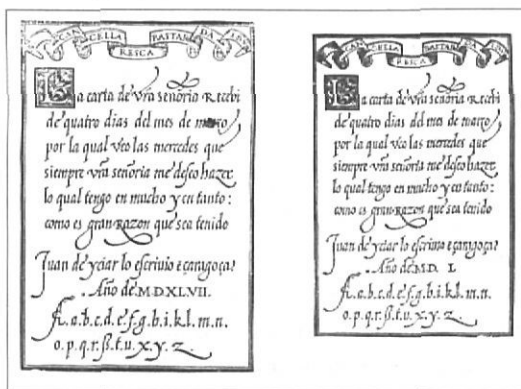 CELLA BASTAR DA
RESCA
La carta de vr̃a señoria Recebi
de quatro dias del mes de março
por la qual veo las mercedes que
siempre vr̃a señoria me desseo hazer
lo qual tengo en mucho y en tanto:
como es gran Razon que sea tenido
Juan de yciar lo escriuio e çaragoça:
Año de M.D.XLVII.
A.a.b.c.d.e.f.g.b.i.k.l.m.n.
o.p.q.r.ß.t.u.x.y.z.
CAN CELLA BASTAR DA
RESCA
La carta de vr̃a señoria Recebi
de quatro dias del mes de março
por la qual veo las mercedes que
siempre vr̃a señoria me desseo hazer
lo qual tengo en mucho y en tanto:
como es gran Razon que sea tenido
Juan de yciar lo escriuio e çaragoça:
Año de M.D. L
A.a.b.c.d.e.f.g.b.i.k.l.m.n.
o.p.q.r.ß.t.u.x.y.z.